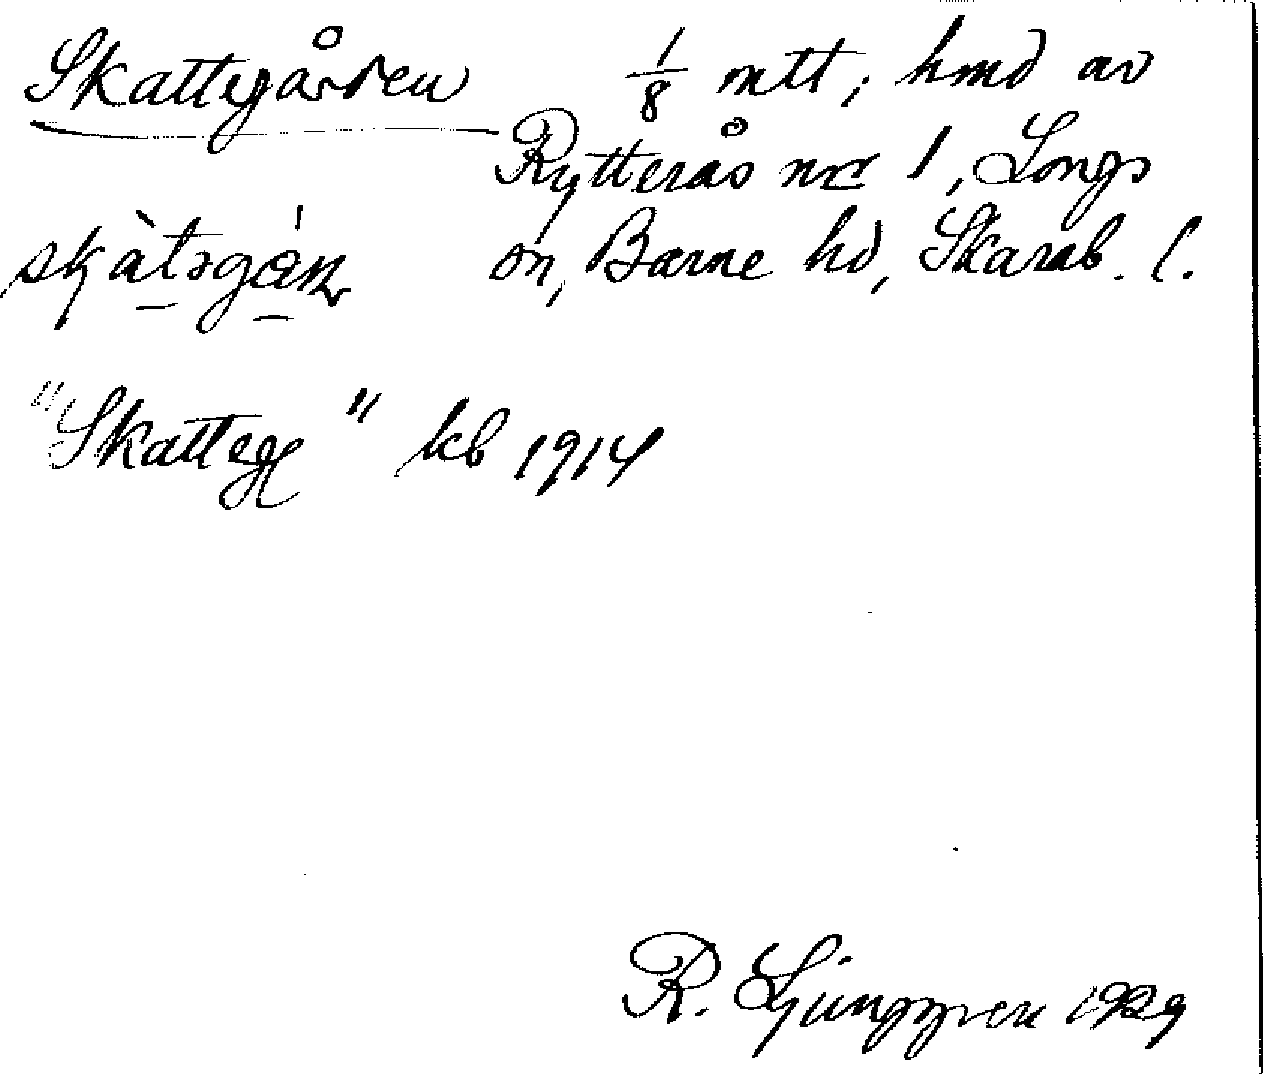 Skattegården 1/8 mtt; hmd av
Rytterås nr 1, Longs
sn, Barne hd, Skarab. l.
"Skatteg" kb 1914
R. Ljunggren 1929